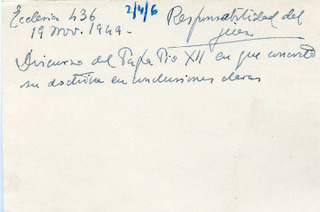 Ecclesia 436
2/4/6
Responsabilidad del
19 Nov. 1949.
juez
Discurso del Papa Pio XII en que concretó
su doctrina en conclusiones claras